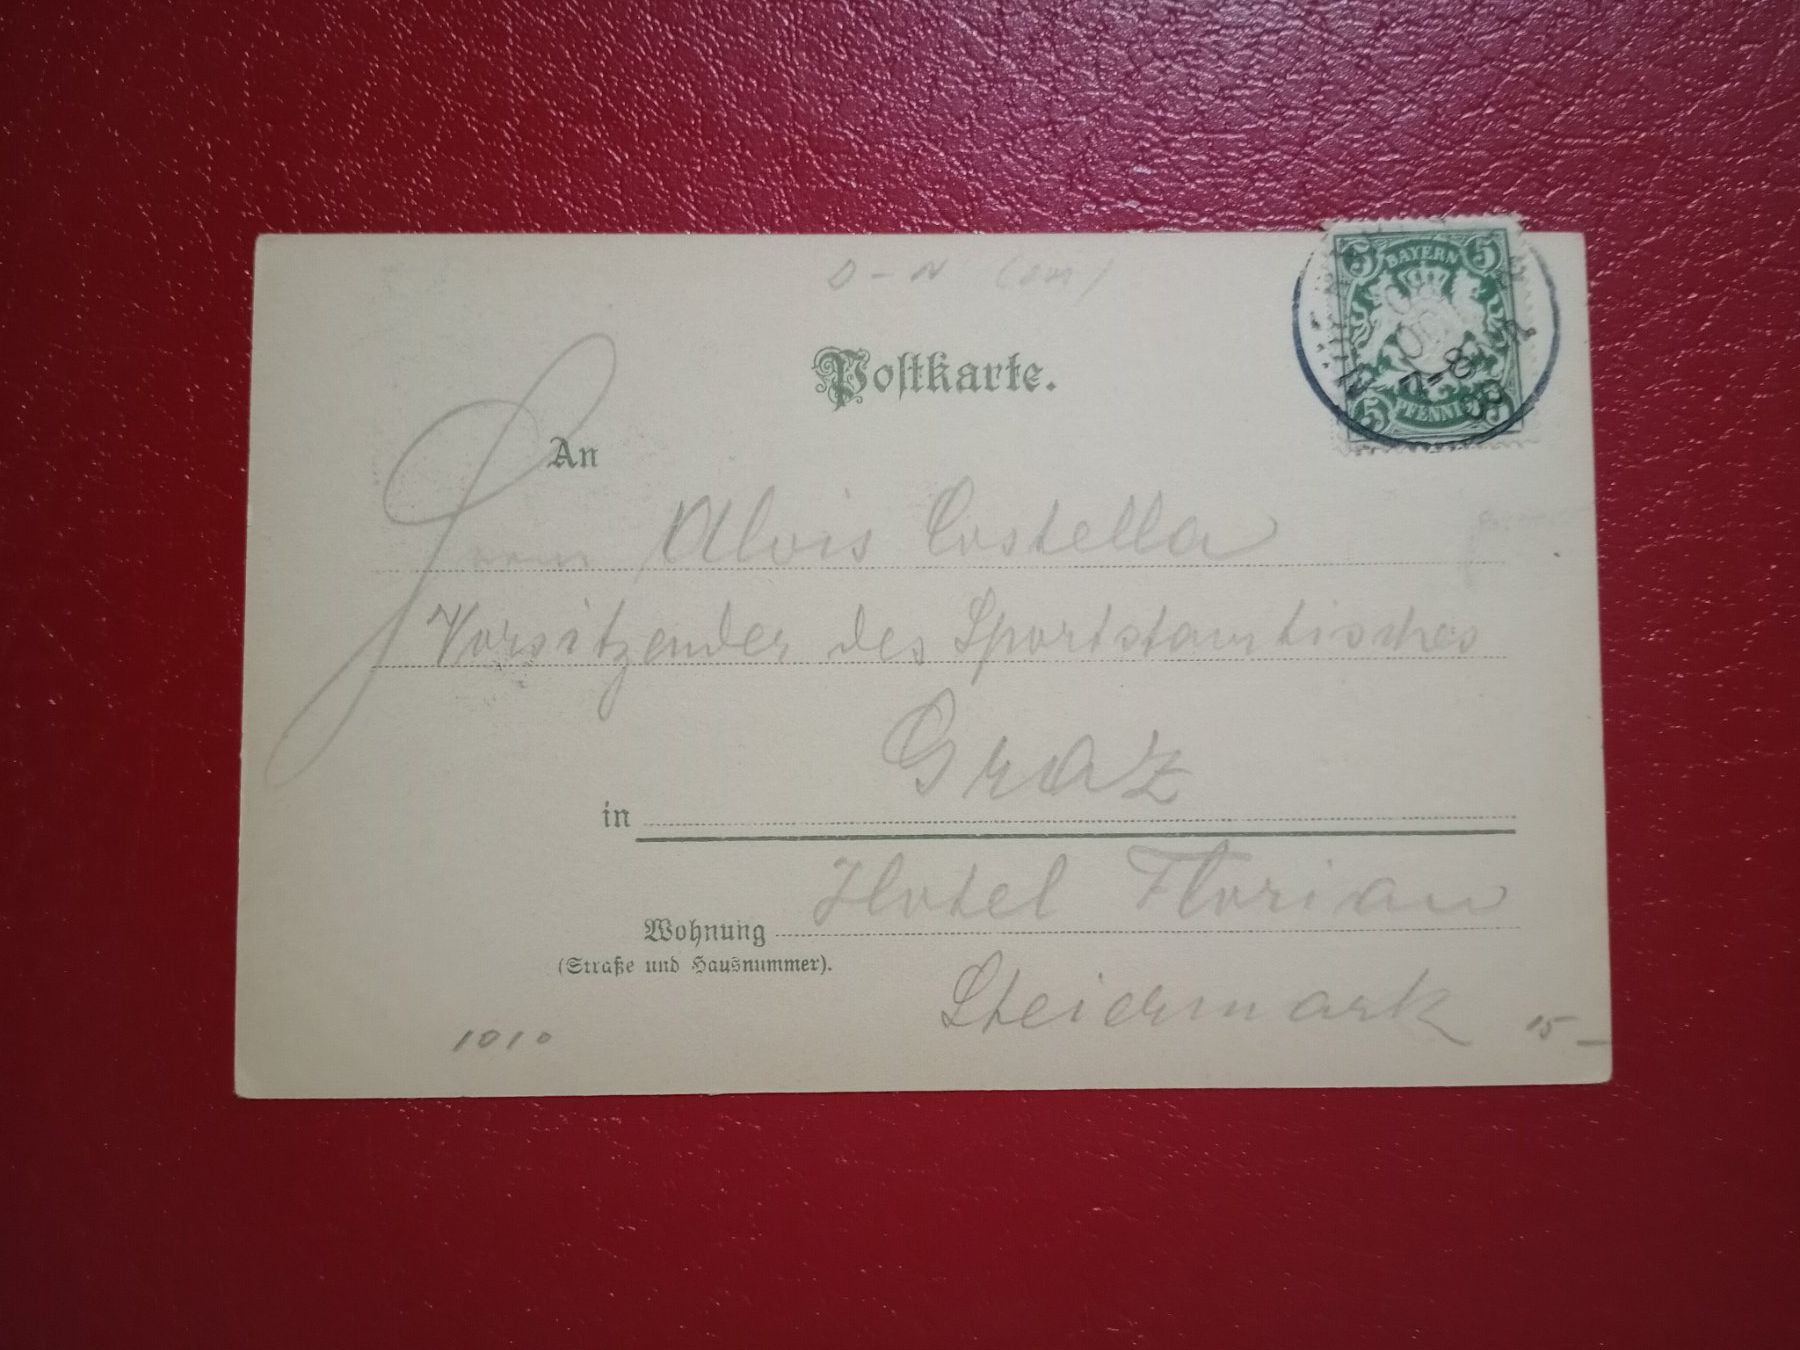 5 BAYERN 5
5 PFENNIG 5
Postkarte.
An
Herrn Alois Costella
Vorsitzender des Sportstamtisches
Graz
in
Hotel Florian
Wohnung
(Straße und Hausnummer).
Steiermark
1010
15 –